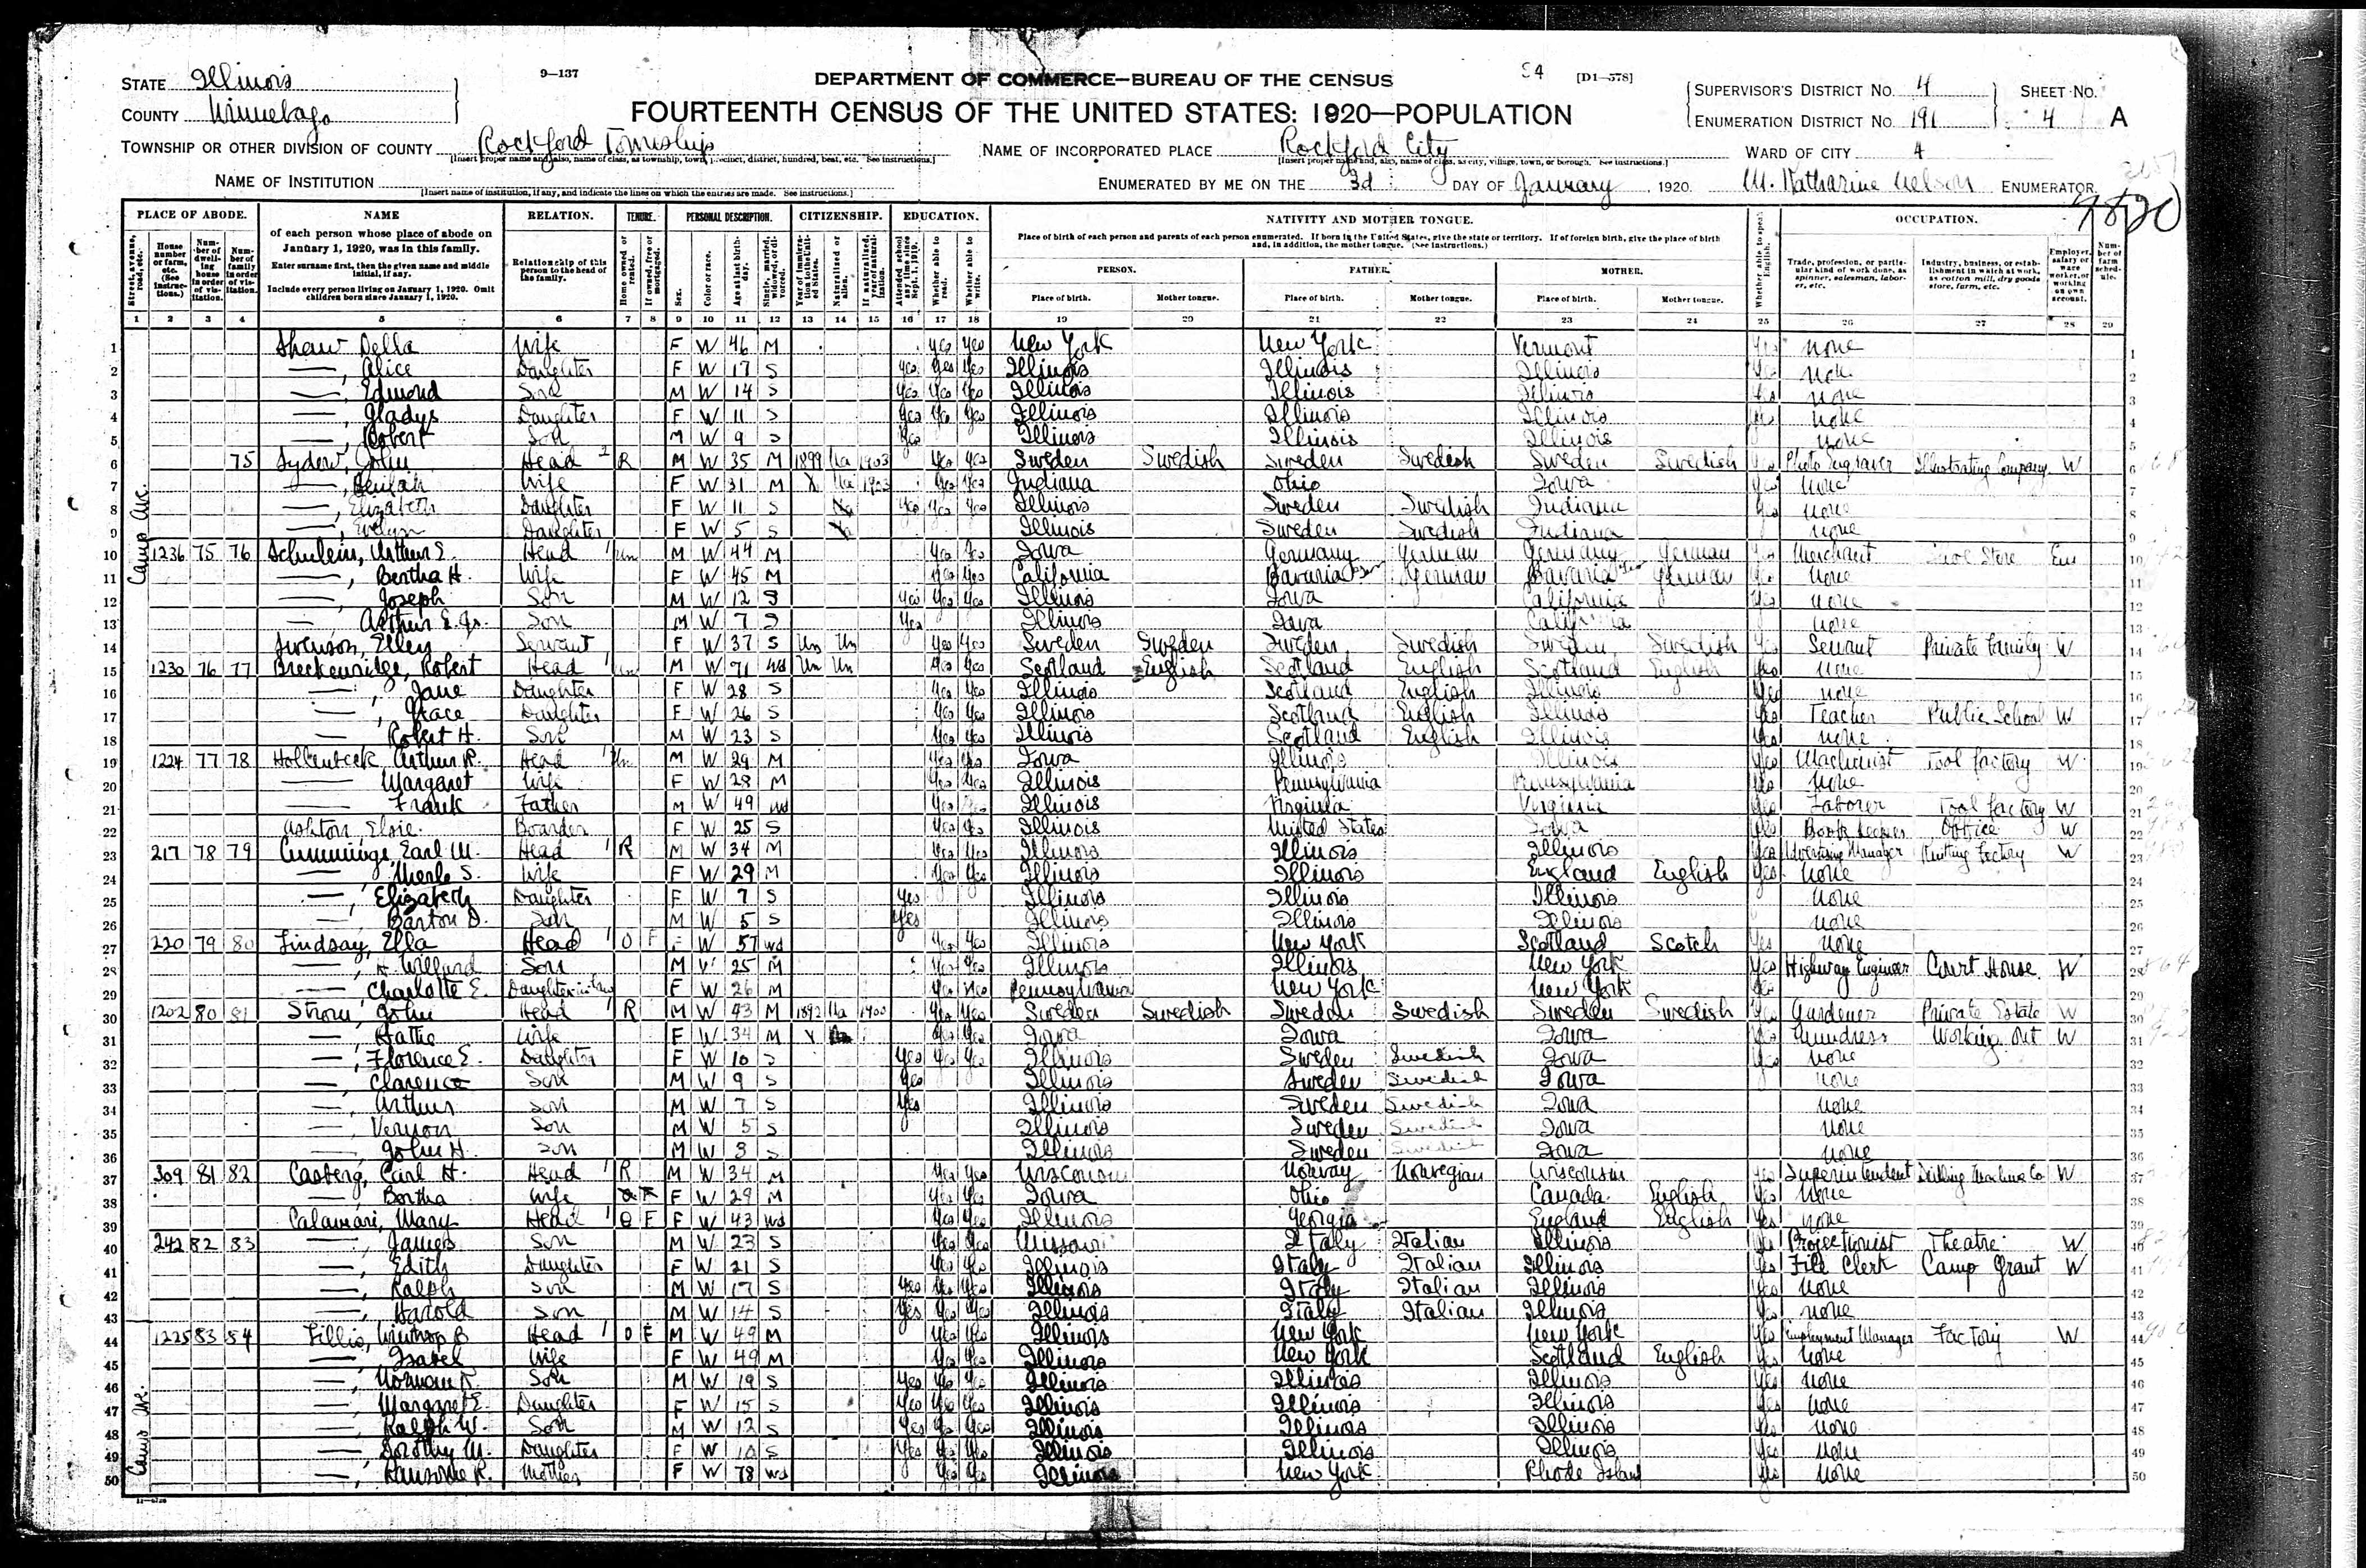 STATE Illinois 9—137 DEPARTMENT OF COMMERCE—BUREAU OF THE CENSUS [D1—578] SUPERVISOR'S DISTRICT No. 4 SHEET No.
COUNTY Winnebago FOURTEENTH CENSUS OF THE UNITED STATES: 1920—POPULATION ENUMERATION DISTRICT No. 191 4 A
TOWNSHIP OR OTHER DIVISION OF COUNTY Rockford Township NAME OF INCORPORATED PLACE Rockford City WARD OF CITY 4
NAME OF INSTITUTION ENUMERATED BY ME ON THE 3d DAY OF January, 1920. M. Katharine Nelson ENUMERATOR.
[Insert name of institution, if any, and indicate the lines on which the entries are made. See instructions.]
PLACE OF ABODE. NAME RELATION. TENURE. PERSONAL DESCRIPTION. CITIZENSHIP. EDUCATION. NATIVITY AND MOTHER TONGUE. OCCUPATION.
of each person whose place of abode on January 1, 1920, was in this family.
Enter surname first, then the given name and middle initial, if any.
Include every person living on January 1, 1920. Omit children born since January 1, 1920.
Relationship of this person to the head of the family.
Place of birth of each person and parents of each person enumerated. If born in the United States, give the state or territory. If of foreign birth, give the place of birth and, in addition, the mother tongue. (See instructions.)
PERSON. FATHER. MOTHER.
Place of birth. Mother tongue. Place of birth. Mother tongue. Place of birth. Mother tongue.
1 2 3 4 5 6 7 8 9 10 11 12 13 14 15 16 17 18 19 20 21 22 23 24 25 26 27 28 29
1 Shaw Della Wife F W 46 M yes yes New York New York Vermont yes none 1
2 —, Alice Daughter F W 17 S yes yes yes Illinois Illinois Illinois none 2
3 —, Edmond Son M W 14 S yes yes yes Illinois Illinois Illinois yes none 3
4 —, Gladys Daughter F W 11 S yes yes yes Illinois Illinois Illinois yes none 4
5 —, Robert Son M W 9 S yes Illinois Illinois Illinois none 5
6 75 Sydow, John Head R M W 35 M 1899 Na 1903 yes yes Sweden Swedish Sweden Swedish Sweden Swedish yes Photo Engraver Illustrating Company W 6
7 —, Beulah Wife F W 31 M X Na 1903 yes yes Indiana Ohio Iowa yes none 7
8 —, Elizabeth Daughter F W 11 S yes yes yes Illinois Sweden Swedish Indiana yes none 8
9 —, Evelyn Daughter F W 5 S Illinois Sweden Swedish Indiana none 9
10 1236 75 76 Schulein, Arthur E. Head Un M W 44 M yes yes Iowa Germany German Germany German yes Merchant Store Em 10
11 —, Bertha H. Wife F W 45 M yes yes California Bavaria German Bavaria German yes none 11
12 —, Joseph Son M W 12 S yes yes yes Illinois Iowa California yes none 12
13 — Arthur E. Jr. Son M W 7 S yes Illinois Iowa California none 13
14 Swenson, Ellen Servant F W 37 S Un Un yes yes Sweden Sweden Sweden Swedish Sweden Swedish yes Servant Private Family W 14
15 1230 76 77 Breckenridge, Robert Head Un M W 71 Wd Un Un yes yes Scotland English Scotland English Scotland English yes none 15
16 —, Jane Daughter F W 28 S yes yes Illinois Scotland English Illinois yes none 16
17 —, Grace Daughter F W 26 S yes yes Illinois Scotland English Illinois yes Teacher Public School W 17
18 — Robert H. Son M W 23 S yes yes Illinois Scotland English Illinois yes none 18
19 1224 77 78 Hollenbeck Arthur R. Head Un M W 29 M yes yes Iowa Illinois Illinois yes Machinist Tool factory W 19
20 — Margaret Wife F W 28 M yes yes Illinois Pennsylvania Pennsylvania yes none 20
21 — Frank Father M W 49 Wd yes yes Illinois Virginia Virginia yes Laborer Tool factory W 21
22 Ashton, Elsie Boarder F W 25 S yes yes Illinois United States Iowa yes Book keeper Office W 22
23 217 78 79 Cummings, Earl M. Head R M W 34 M yes yes Illinois Illinois Illinois yes Advertising Manager Knitting Factory W 23
24 —, Merle S. Wife F W 29 M yes yes Illinois Illinois England English yes none 24
25 —, Elizabeth Daughter F W 7 S yes Illinois Illinois Illinois none 25
26 —, Barton D. Son M W 5 S yes Illinois Illinois Illinois none 26
27 220 79 80 Lindsay, Ella Head O F F W 57 wd yes yes Illinois New York Scotland Scotch yes none 27
28 —, Willard Son M W 25 M yes yes Illinois Illinois New York yes Highway Engineer Court House W 28
29 —, Charlotte E. Daughter in law F W 26 M yes yes Pennsylvania New York New York yes 29
30 1202 80 81 Strom, John Head R M W 43 M 1892 Na 1900 yes yes Sweden Swedish Sweden Swedish Sweden Swedish yes Gardener Private Estate W 30
31 —, Hattie Wife F W 34 M yes yes Iowa Iowa Iowa yes Laundress Working out W 31
32 —, Florence E. Daughter F W 10 S yes yes yes Illinois Sweden Swedish Iowa yes none 32
33 —, Clarence Son M W 9 S yes Illinois Sweden Swedish Iowa none 33
34 —, Arthur Son M W 7 S yes Illinois Sweden Swedish Iowa none 34
35 —, Vernon Son M W 5 S Illinois Sweden Swedish Iowa none 35
36 —, John H. Son M W 3 S Illinois Sweden Swedish Iowa none 36
37 309 81 82 Casberg, Carl H. Head R M W 34 M yes yes Wisconsin Norway Norwegian Wisconsin yes Superintendent Drilling Machine Co W 37
38 —, Bertha Wife F W 29 M yes yes Iowa Ohio Canada English yes none 38
39 Calamari, Mary Head O F F W 43 wd yes yes Illinois Georgia England English yes none 39
40 242 82 83 —, James Son M W 23 S yes yes Missouri Italy Italian Illinois yes Projectionist Theatre W 40
41 —, Edith Daughter F W 21 S yes yes Illinois Italy Italian Illinois yes File Clerk Camp Grant W 41
42 —, Ralph Son M W 17 S yes yes yes Illinois Italy Italian Illinois yes none 42
43 —, Harold Son M W 14 S yes yes yes Illinois Italy Italian Illinois yes none 43
44 1225 83 84 Fillis, Winthrop B Head O F M W 49 M yes yes Illinois New York New York yes Employment Manager Factory W 44
45 —, Isabel Wife F W 49 M yes yes Illinois New York Scotland English yes none 45
46 —, Norman R. Son M W 19 S yes yes yes Illinois Illinois Illinois yes none 46
47 —, Margaret E. Daughter F W 15 S yes yes yes Illinois Illinois Illinois yes none 47
48 —, Ralph W. Son M W 12 S yes yes yes Illinois Illinois Illinois yes none 48
49 —, Dorothy M. Daughter F W 10 S yes yes yes Illinois Illinois Illinois yes none 49
50 — R. Mother F W 78 wd yes yes Illinois New York Rhode Island yes none 50
Camp Ave.